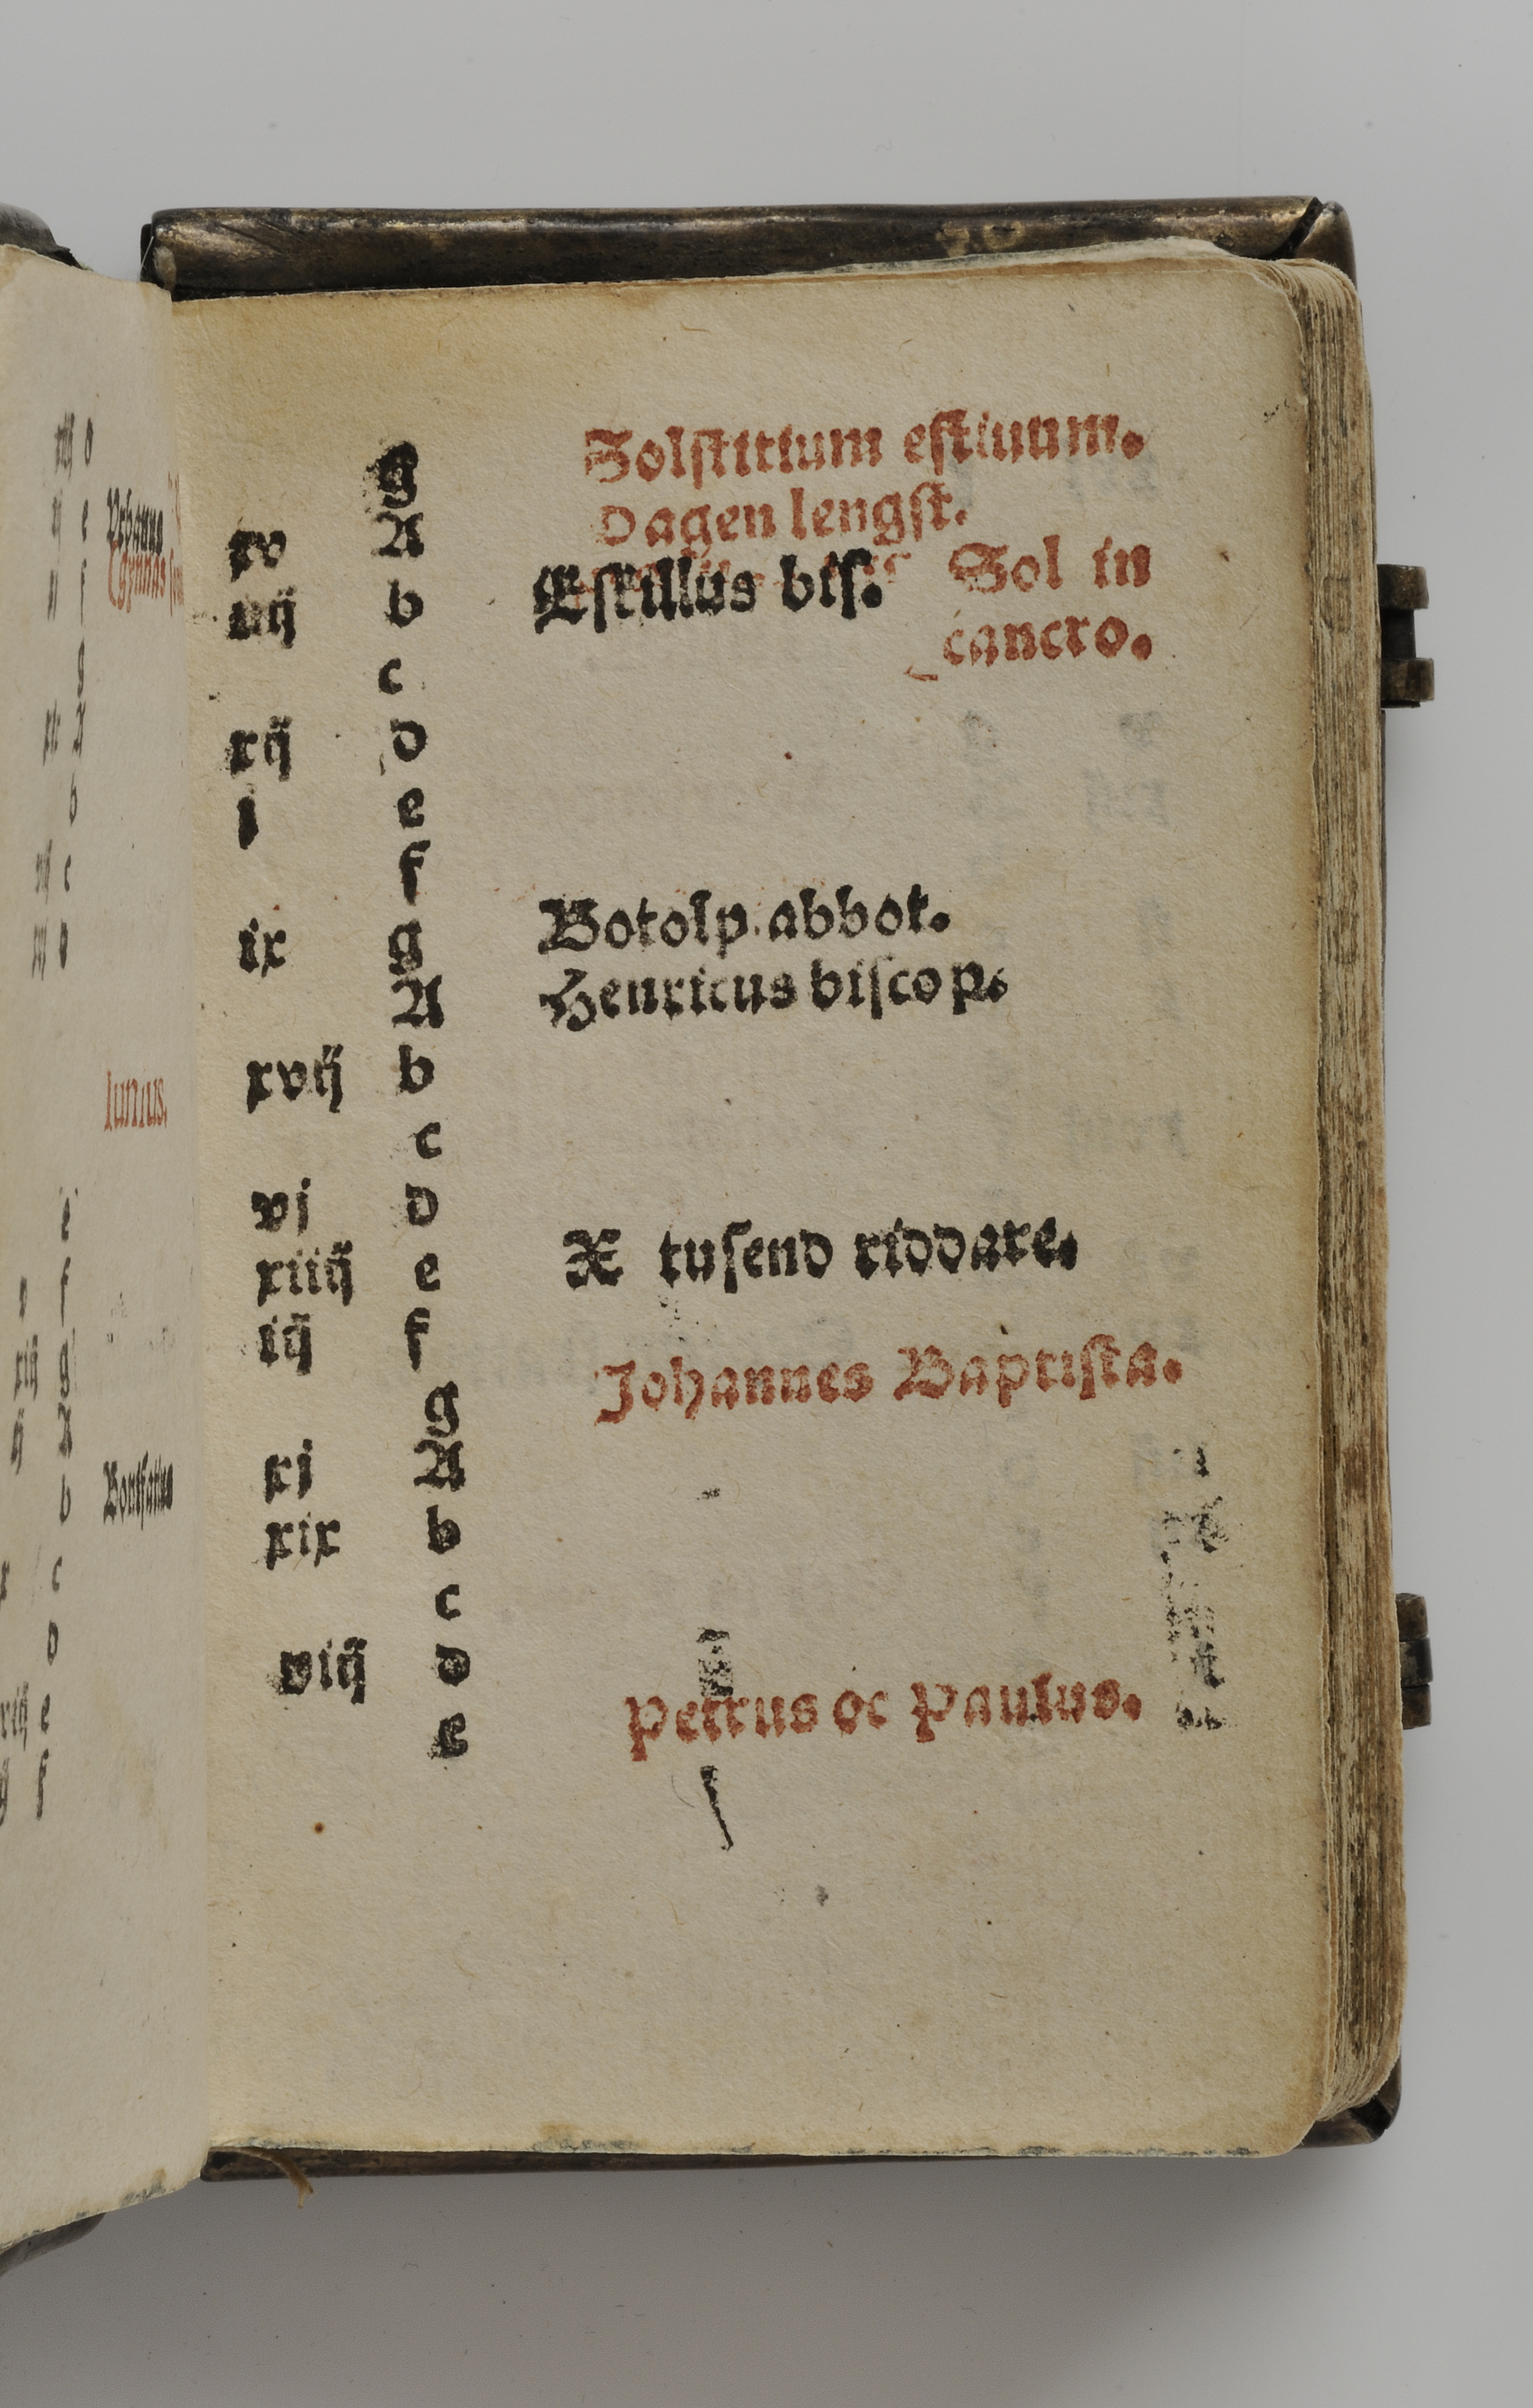 g Solstitium estiuum.
xv A Dagen lengst.
iiij b Eskillus bis. Sol in
c cancro.
xij d
i e
f
ix g Botolp abbot.
A Henricus biscop.
xvij b
c
vj d
xiiij e X tusend riddare.
iij f
g Johannes Baptista.
xj A
xix b
c
viij d
e Petrus oc Paulus.
Iunius.